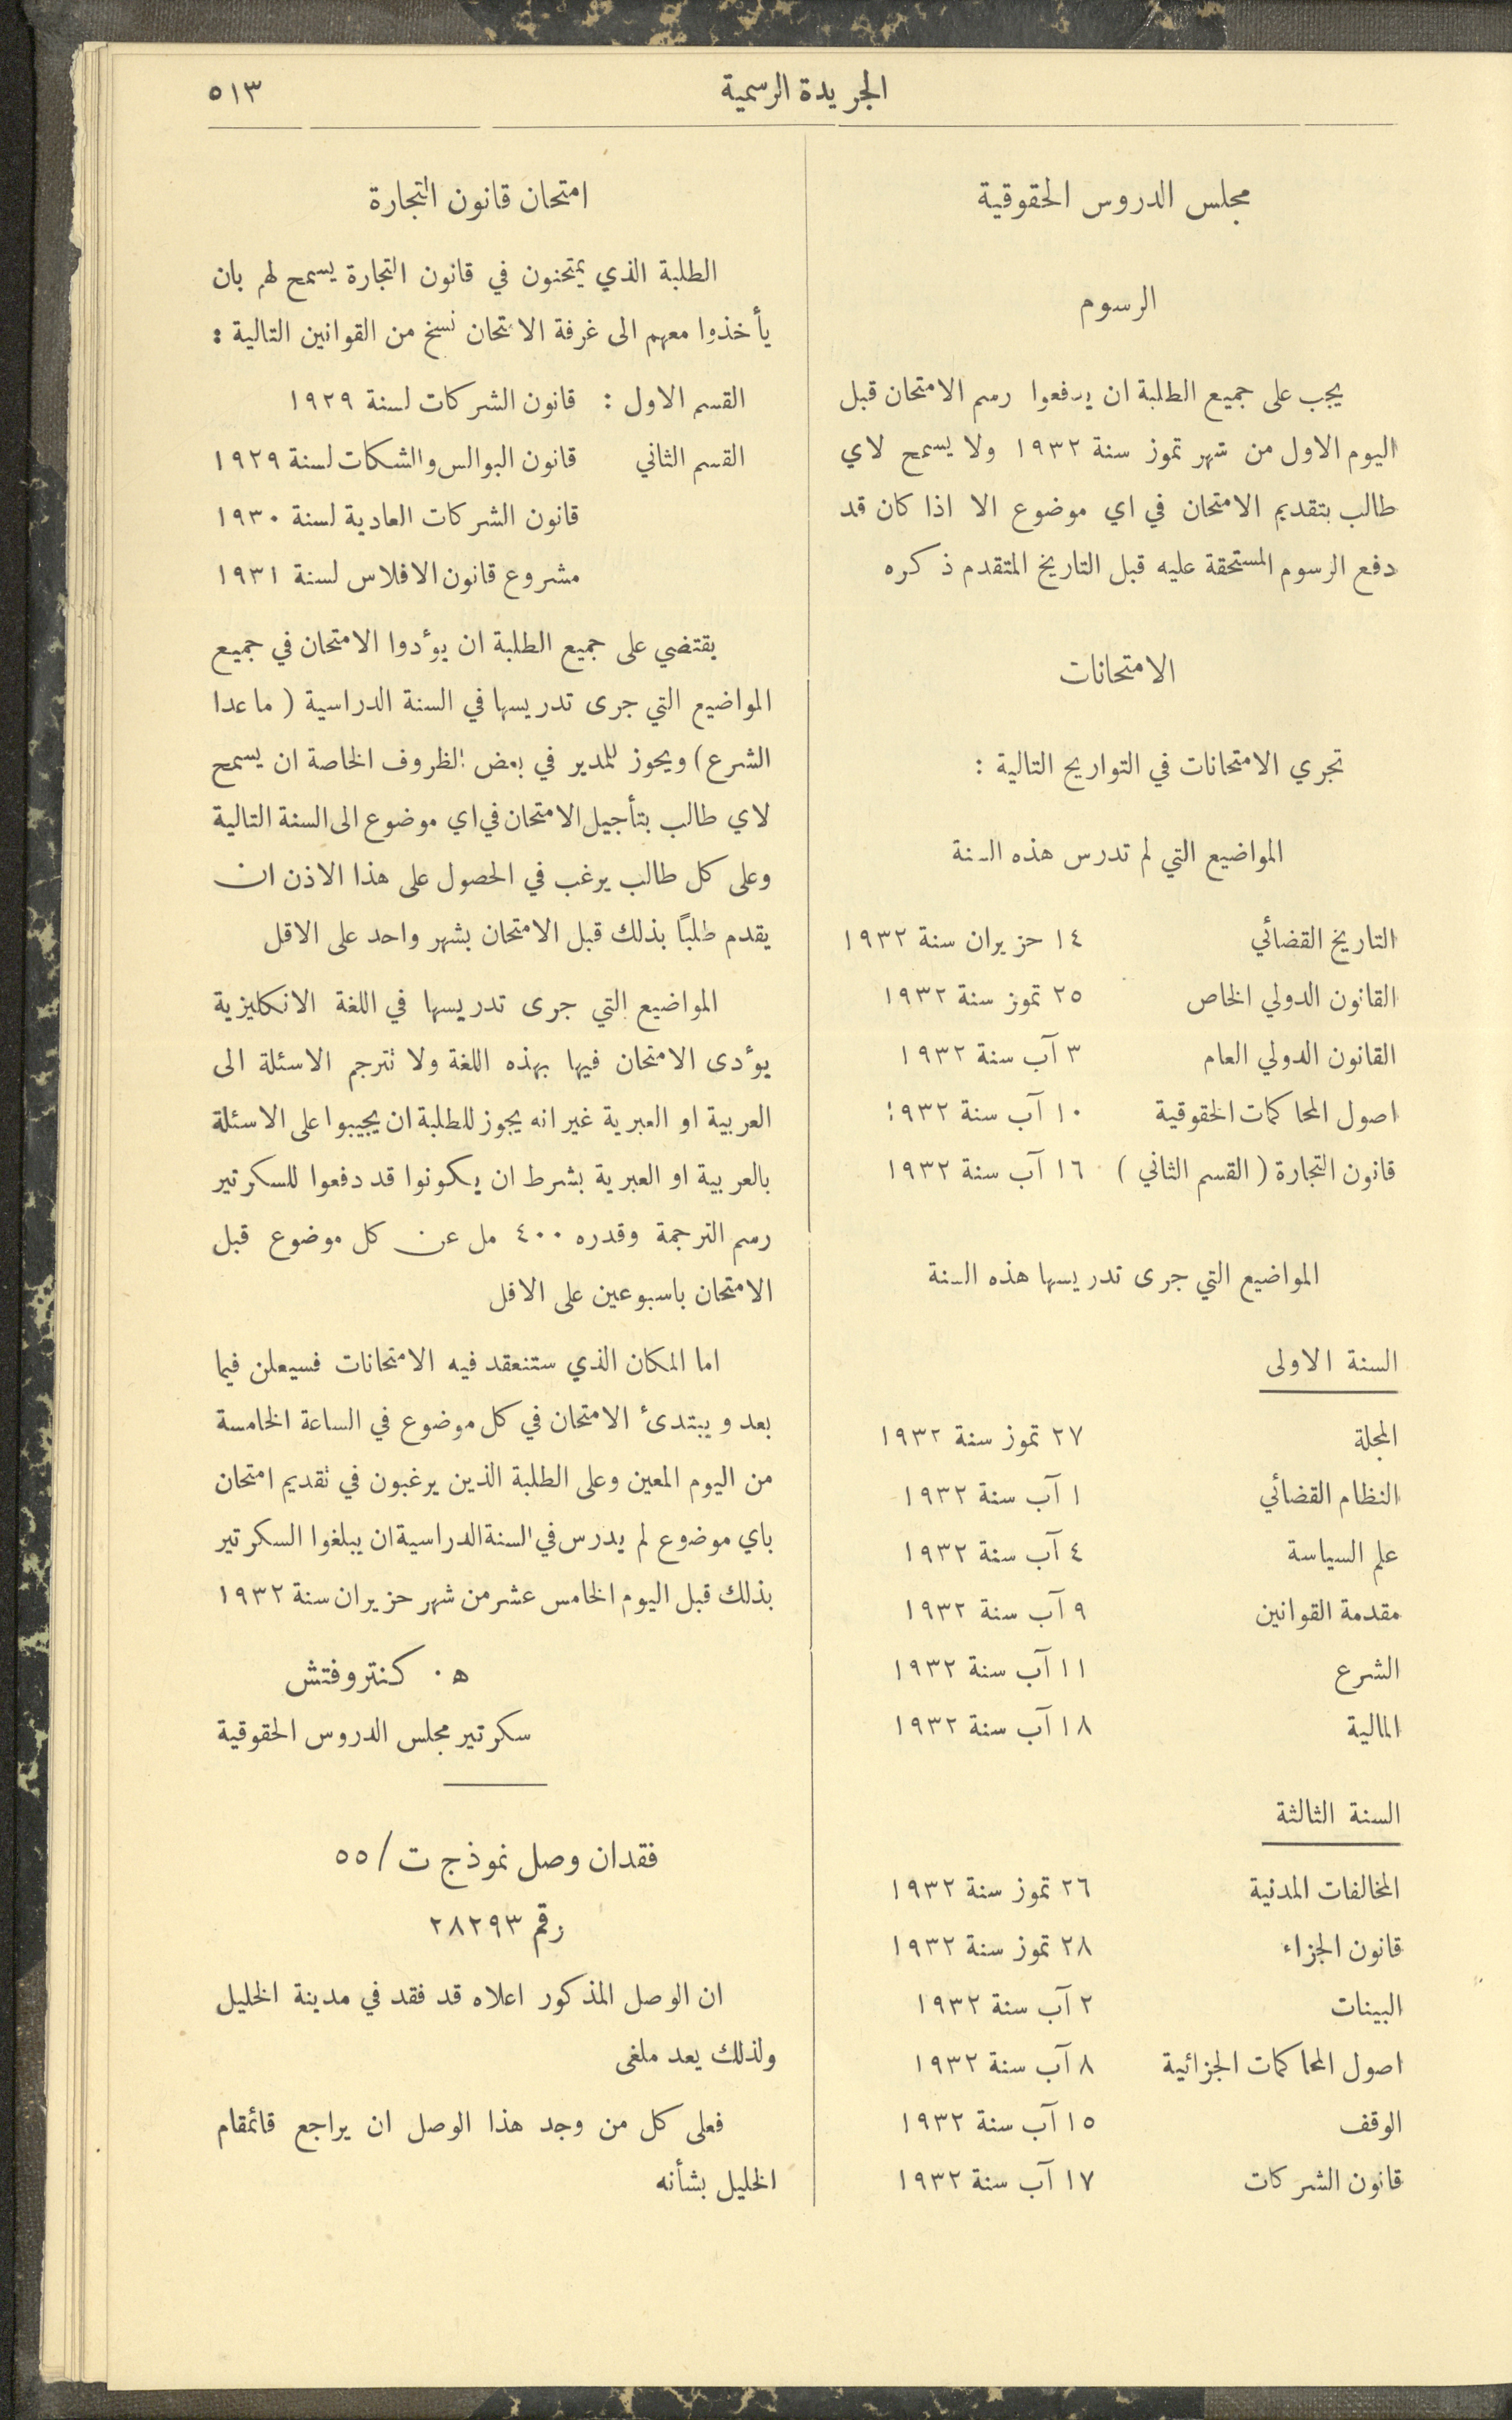 الجريدة الرسمية ٥١٣
مجلس الدروس الحقوقية
الرسوم
يجب على جميع الطلبة ان يدفعوا رسم الامتحان قبل
اليوم الاول من شهر تموز سنة ١٩٣٢ ولا يسمح لاي
طالب بتقديم الامتحان في اي موضوع الا اذا كان قد
دفع الرسوم المستحقة عليه قبل التاريخ المتقدم ذكره
الامتحانات
تجري الامتحانات في التواريخ التالية :
المواضيع التي لم تدرس هذه السنة
التاريخ القضائي ١٤ حزيران سنة ١٩٣٢
القانون الدولي الخاص ٢٥ تموز سنة ١٩٣٢
القانون الدولي العام ٣ آب سنة ١٩٣٢
اصول المحاكمات الحقوقية ١٠ آب سنة ١٩٣٢
قانون التجارة ( القسم الثاني ) ١٦ آب سنة ١٩٣٢
المواضيع التي جرى تدريسها هذه السنة
السنة الاولى
المجلة ٢٧ تموز سنة ١٩٣٢
النظام القضائي ١ آب سنة ١٩٣٢
علم السياسة ٤ آب سنة ١٩٣٢
مقدمة القوانين ٩ آب سنة ١٩٣٢
الشرع ١١ آب سنة ١٩٣٢
المالية ١٨ آب سنة ١٩٣٢
السنة الثالثة
المخالفات المدنية ٢٦ تموز سنة ١٩٣٢
قانون الجزاء ٢٨ تموز سنة ١٩٣٢
البينات ٢ آب سنة ١٩٣٢
اصول المحاكمات الجزائية ٨ آب سنة ١٩٣٢
الوقف ١٥ آب سنة ١٩٣٢
قانون الشركات ١٧ آب سنة ١٩٣٢
امتحان قانون التجارة
الطلبة الذي يمتحنون في قانون التجارة يسمح لهم بان
يأخذوا معهم الى غرفة الامتحان نسخ من القوانين التالية :
القسم الاول : قانون الشركات لسنة ١٩٢٩
القسم الثاني قانون البوالس والشكات لسنة ١٩٢٩
قانون الشركات العادية لسنة ١٩٣٠
مشروع قانون الافلاس لسنة ١٩٣١
يقتضي على جميع الطلبة ان يوٴدوا الامتحان في جميع
المواضيع التي جرى تدريسها في السنة الدراسية ( ما عدا
الشرع ) ويجوز للمدير في بعض الظروف الخاصة ان يسمح
لاي طالب بتأجيل الامتحان في اي موضوع الى السنة التالية
وعلى كل طالب يرغب في الحصول على هذا الاذن ان
يقدم طلبًا بذلك قبل الامتحان بشهر واحد على الاقل
المواضيع التي جرى تدريسها في اللغة الانكليزية
يوٴدى الامتحان فيها بهذه اللغة ولا تترجم الاسئلة الى
العربية او العبرية غير انه يجوز للطلبة ان يجيبوا على الاسئلة
بالعربية او العبرية بشرط ان يكونوا قد دفعوا للسكرتير
رسم الترجمة وقدره ٤٠٠ مل عن كل موضوع قبل
الامتحان باسبوعين على الاقل
اما المكان الذي ستنعقد فيه الامتحانات فسيعلن فيما
بعد ويبتدئ الامتحان في كل موضوع في الساعة الخامسة
من اليوم المعين وعلى الطلبة الذين يرغبون في تقديم امتحان
باي موضوع لم يدرس في السنة الدراسية ان يبلغوا السكرتير
بذلك قبل اليوم الخامس عشر من شهر حزيران سنة ١٩٣٢
ه . كنتروفتش
سكرتير مجلس الدروس الحقوقية
فقدان وصل نموذج ت / ٥٥
رقم ٢٨٢٩٣
ان الوصل المذكور اعلاه قد فقد في مدينة الخليل
ولذلك يعد ملغى
فعلى كل من وجد هذا الوصل ان يراجع قائمقام
الخليل بشأنه